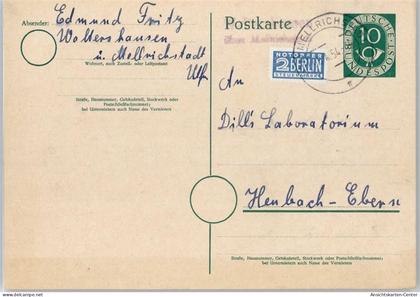 Absender: Edmund Fritz
Woltershausen
ü. Mellrichstadt
Wohnort, auch Zustell- oder Leitpostamt
Ufr.
Straße, Hausnummer, Gebäudeteil, Stockwerk oder
Postschließfachnummer;
bei Untermietern auch Name des Vermieters
Postkarte
MELLRICHS
NOTOPFER
2 BERLIN
STEUERMARKE
DEUTSCHE
BUNDESPOST
10
An
Dill's Laboratorium
Heubach-Ebern
Straße, Hausnummer, Gebäudeteil, Stockwerk oder Postschließfachnummer;
bei Untermietern auch Name des Vermieters
Ansichtskarten-Center